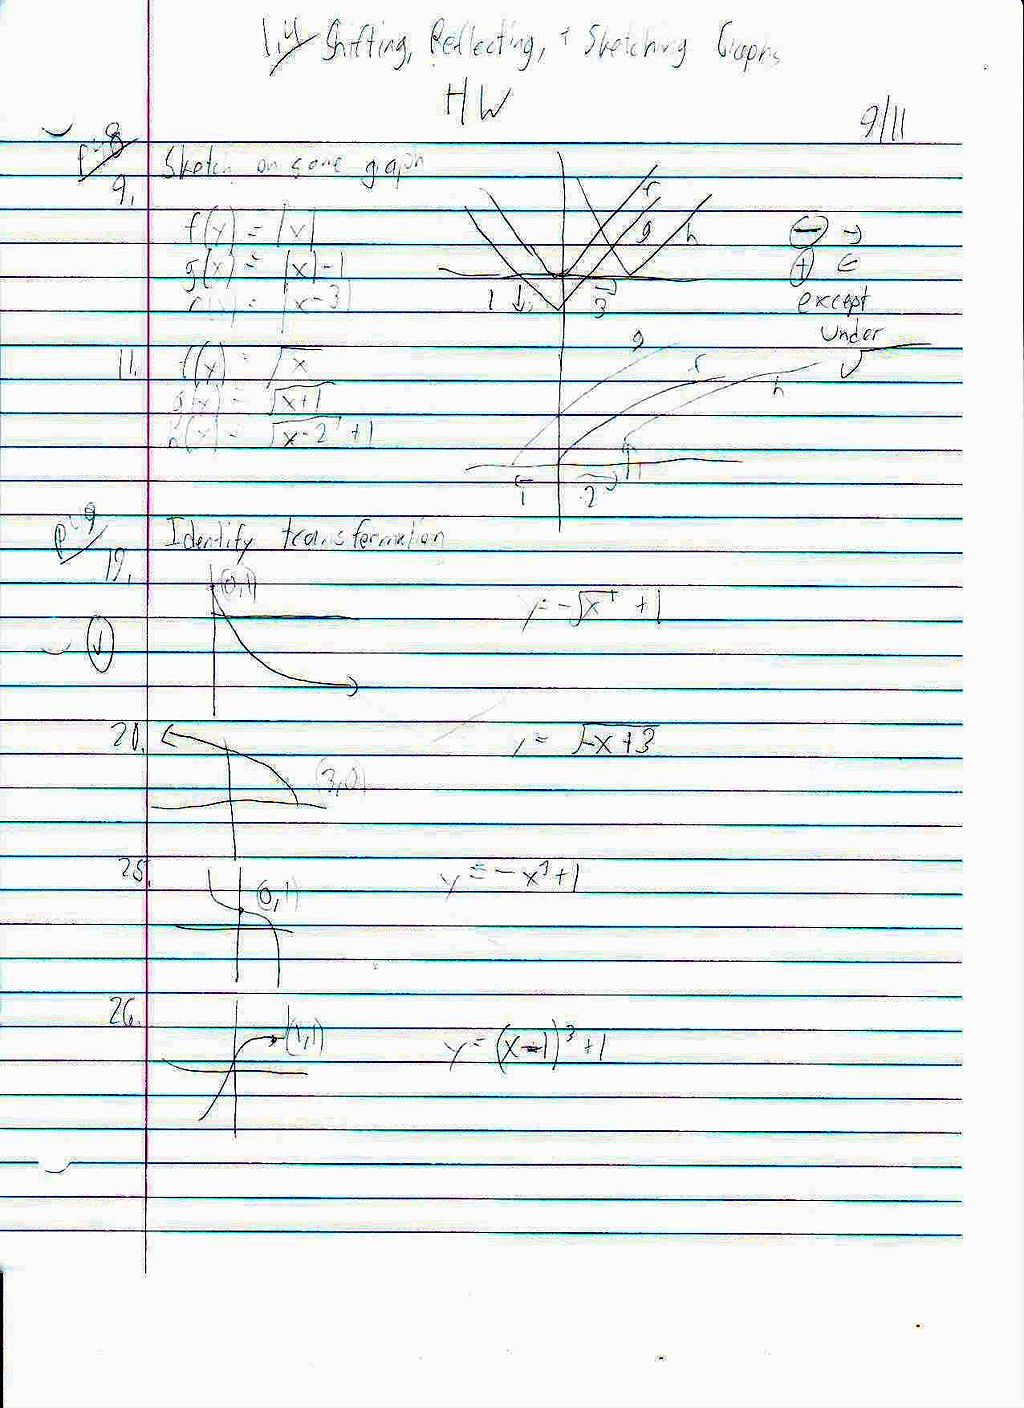 1.4 Shifting, Reflecting, + Sketching Graphs
HW
9/11
Sketch on same graph
9.
f(x) = |x|
g(x) = |x|-1
|x-3|
f
g
h
1 ↓
3
⊖ →
⊕ ←
except
under
√
11.
f(x) = √x
g(x) = √x+1
h(x) = √x-2 +1
g
f
h
1
2
1
Identify transformation
19.
(0,1)
y = -√x +1
20.
(3,0)
y = √-x+3
25.
(0,1)
y = -x³+1
26.
(1,1)
y = (x-1)³+1